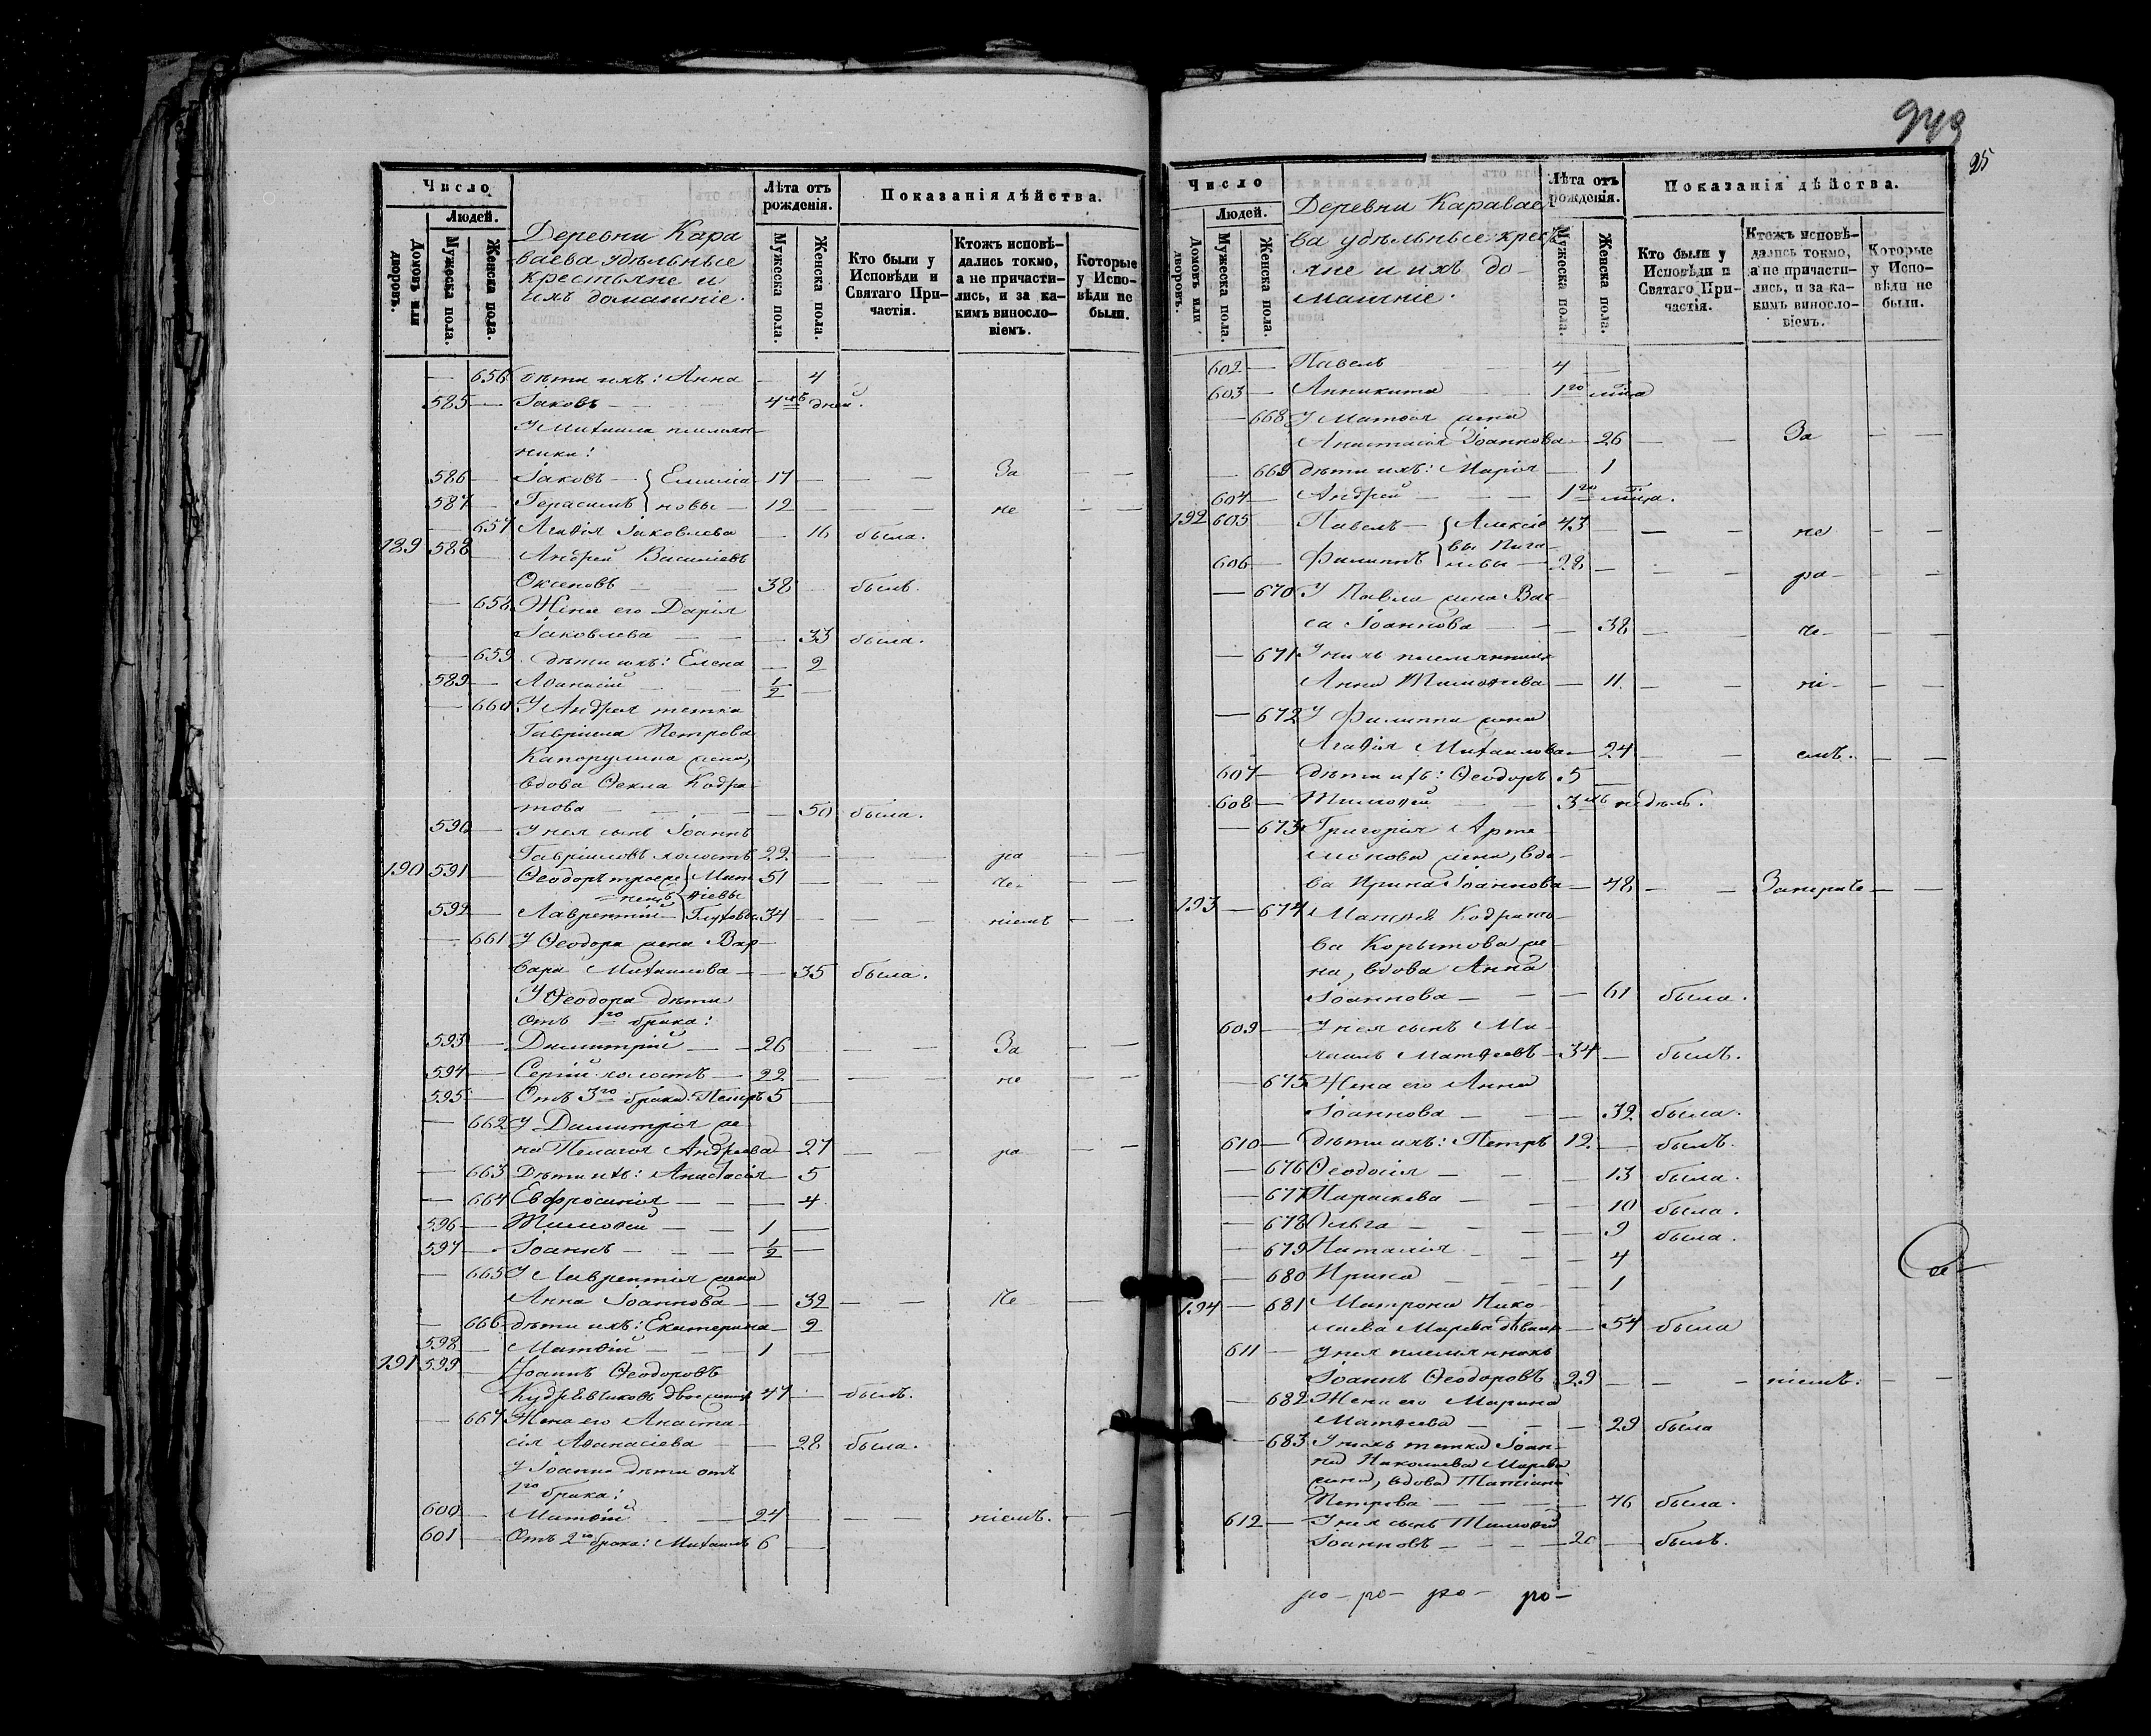 949
25
Число
Людей.
Домовъ или дворовъ.
Мужеска пола.
Женска пола.
Деревни Кара
ваева удѣльные
крестьяне и
ихъ домашніе.
Лѣта отъ рожденія.
Мужеска пола.
Женска пола.
Показанія дѣйства.
Кто были у Исповѣди и Святаго Причастія.
Ктожъ исповѣдались токмо, а не причастились, и за какимъ винословіемъ.
Которые у Исповѣди не были.
— 656 дѣти ихъ: Анна — 4
585 — Іаковъ — 4хъ дней.
У Михаила племян-
ники:
586 — Іаковъ — Емилiа 17 — — — За — —
587 — Герасимъ новы — 12 — — не — —
— 657 Агаѳія Іаковлева — 16 была.
189 588 — Андрей Василіевъ
Оксеновъ — — 38 — былъ.
— 658 Жена его Дарія
Іаковлева — — — 33 была.
— 659 дѣти ихъ: Елена — 2
589 — Аѳанасій — 1/2 —
— 660 У Андрея тетка
Гавріила Петрова
жена,
вдова Ѳекла Кодра-
това — — — 50 была.
590 — У нея сынъ Іоаннъ
Гавріиловъ холостъ 22 — — — ра — —
190 591 — Ѳеодоръ троеже- Мат 51 — — — че- — —
нецъ ѳіевы
592 — Лаврентій — Глуховы 34 — — — ніемъ — —
— 661 У Ѳеодора жена Вар-
вара Михаилова — — 35 была.
У Ѳеодора дѣти
отъ 1го брака:
593 — Димитрій — — 26 — — За — —
594 — Сергій холостъ — 22 — — — не — —
595 — Отъ 3го брака: Петръ 5 —
— 662 У Димитрія же-
на Пелагія Андреева 27 — — ра — —
— 663 Дѣти ихъ: Анастасія — 5
— 664 Евфросинія — — — 4
596 — Тимоѳей — — 1 —
597 — Іоаннъ — — — 1/2 —
— 665 У Лаврентія жена
Анна Іоаннова — — 32 — — че —
— 666 дѣти ихъ: Екатерина — 2
598 — Матѳій — — — 1 —
191 599 — Іоаннъ Ѳеодоровъ
47 — былъ.
— 667 Жена его Анаста-
сія Аѳанасіева — — 28 была.
У Іоанна дѣти отъ
1го брака:
600 — Матѳій — 24 — — ніемъ. — —
601 — Отъ 2го брака: Михаилъ 6 —
Число
Людей.
Домовъ или дворовъ.
Мужеска пола.
Женска пола.
Деревни Каравае
ва удѣльные кресть
яне и ихъ до-
машніе.
Лѣта отъ рожденія.
Мужеска пола.
Женска пола.
Показанія дѣйства.
Кто были у Исповѣди и Святаго Причастія.
Ктожъ исповѣдались токмо, а не причастились, и за какимъ винословіемъ.
Которые у Исповѣди не были.
602 — Павелъ — — 4 —
603 — Анникита — 1го мца
— 668 У Матѳія жена
Анастасія Іоаннова — 26 — — За — —
— 669 дѣти ихъ: Марія — 1
604 — Андрей — — — 1го мца.
192 605 Павелъ — Алексіе 43 — — — не — —
606 — Филиппъ вы 28 — — — ра- — —
— 670 У Павла жена Вас
са Іоаннова — — — 38 — — че- — —
— 671 У нихъ племянница
Анна Тимоѳеева — 11. — — ні- — —
— 672 У Филиппа жена
Агаѳія Михаилова — 24 — — емъ. — —
607 — дѣти ихъ: Ѳеодоръ 5 —
608 — Тимоѳей — — 3хъ недѣль.
— 673 Григорія Арте-
монова жена, вдо-
ва Ирина Іоаннова — 48 — — Занераче — —
193 — 674 Матѳія Кодрато-
ва Корытова же-
на, вдова Анна
Іоаннова — — — 61 была.
609 — У нея сынъ Ми-
хаилъ Матѳеевъ — 34 — былъ.
— 675 Жена его Анна
Іоаннова — — — 32 была.
610 — дѣти ихъ: Петръ 12. — былъ.
— 676 Ѳеодосія — — — 13 была.
— 677 Параскева — — — 10 была.
— 678 Ольга — — — 9 была.
— 679 Наталія — — — 4
— 680 Ирина — — — 1
194 — 681 Матрона Нико-
лаева дѣвица — 54 была
611 — У нея племянникъ
Іоаннъ Ѳеодоровъ 29 — — — ніемъ. — —
— 682 Жена его Марина
Матѳеева — — — 29 была
— 683 У нихъ тетка Іоан-
на Николаева
жена, вдова Татіана
Петрова — — — 46 была.
612 — У нея сынъ Тимоѳей
Іоанновъ — — — — былъ.
ро- ро- ро- ро-